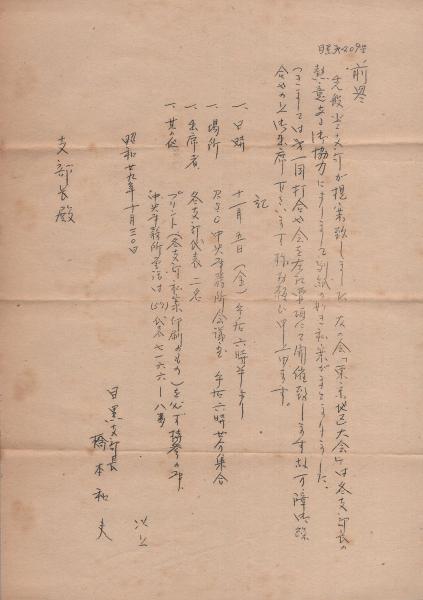 前略
先般当支部が提案致しました友の会「東京地区大会」は各支部長の
熱意ある御協力によりまして別紙の如き私案がまとまりました。
つきましては第一回打合せ会を左記要項にて開催致しますので御
合せの上御出席下さいます様お願い申上げます。
記
一、日時 十一月五日(金)午后六時半より
一、場所 中央事務所会議室 午后六時廿分集合
一、出席者 各支部代表 二名
一、其の他 プリント(各支部私案印刷のもの)を必ず持参の事
中央事務所電話は(57)代表七一六六—八番
以上
昭和廿九年十月三〇日
目黒支部長
橋本和夫
支部長殿